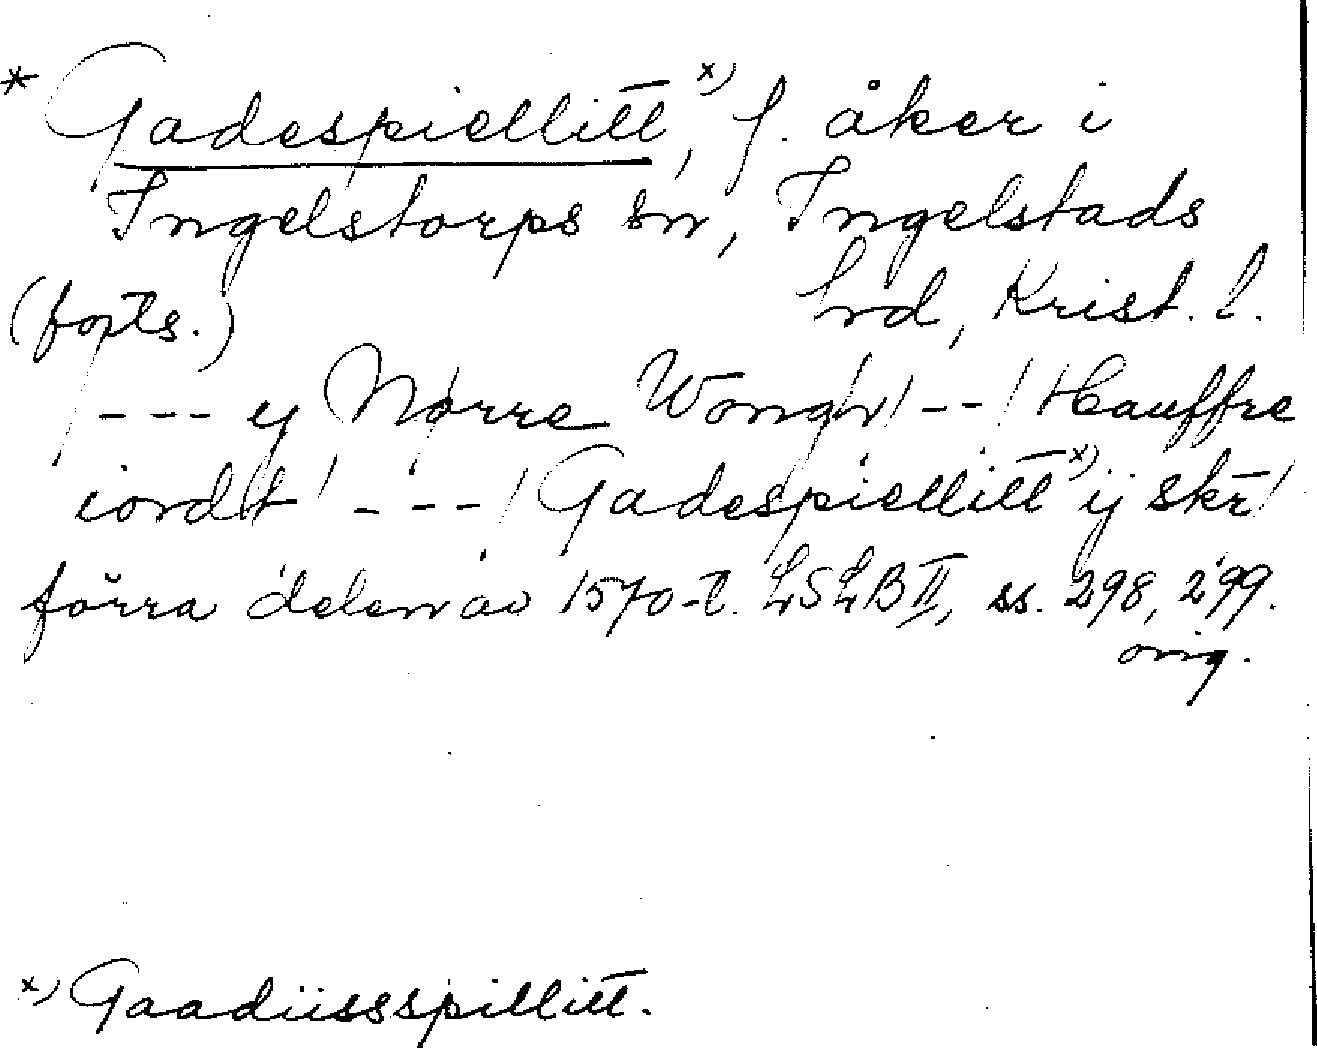 * Gadespiellitt x), f. åker i
Ingelstorps sn, Ingelstads
(forts.) hrd, Krist. l.
--- y Nørre Wongh/ -- / Hauffre
iordt / --- / Gadespiellitt x) ij skr̄ /
förra delen av 1570-t. LSLB II, ss. 298, 299.
orig.
x) Gaadiissspillitt.